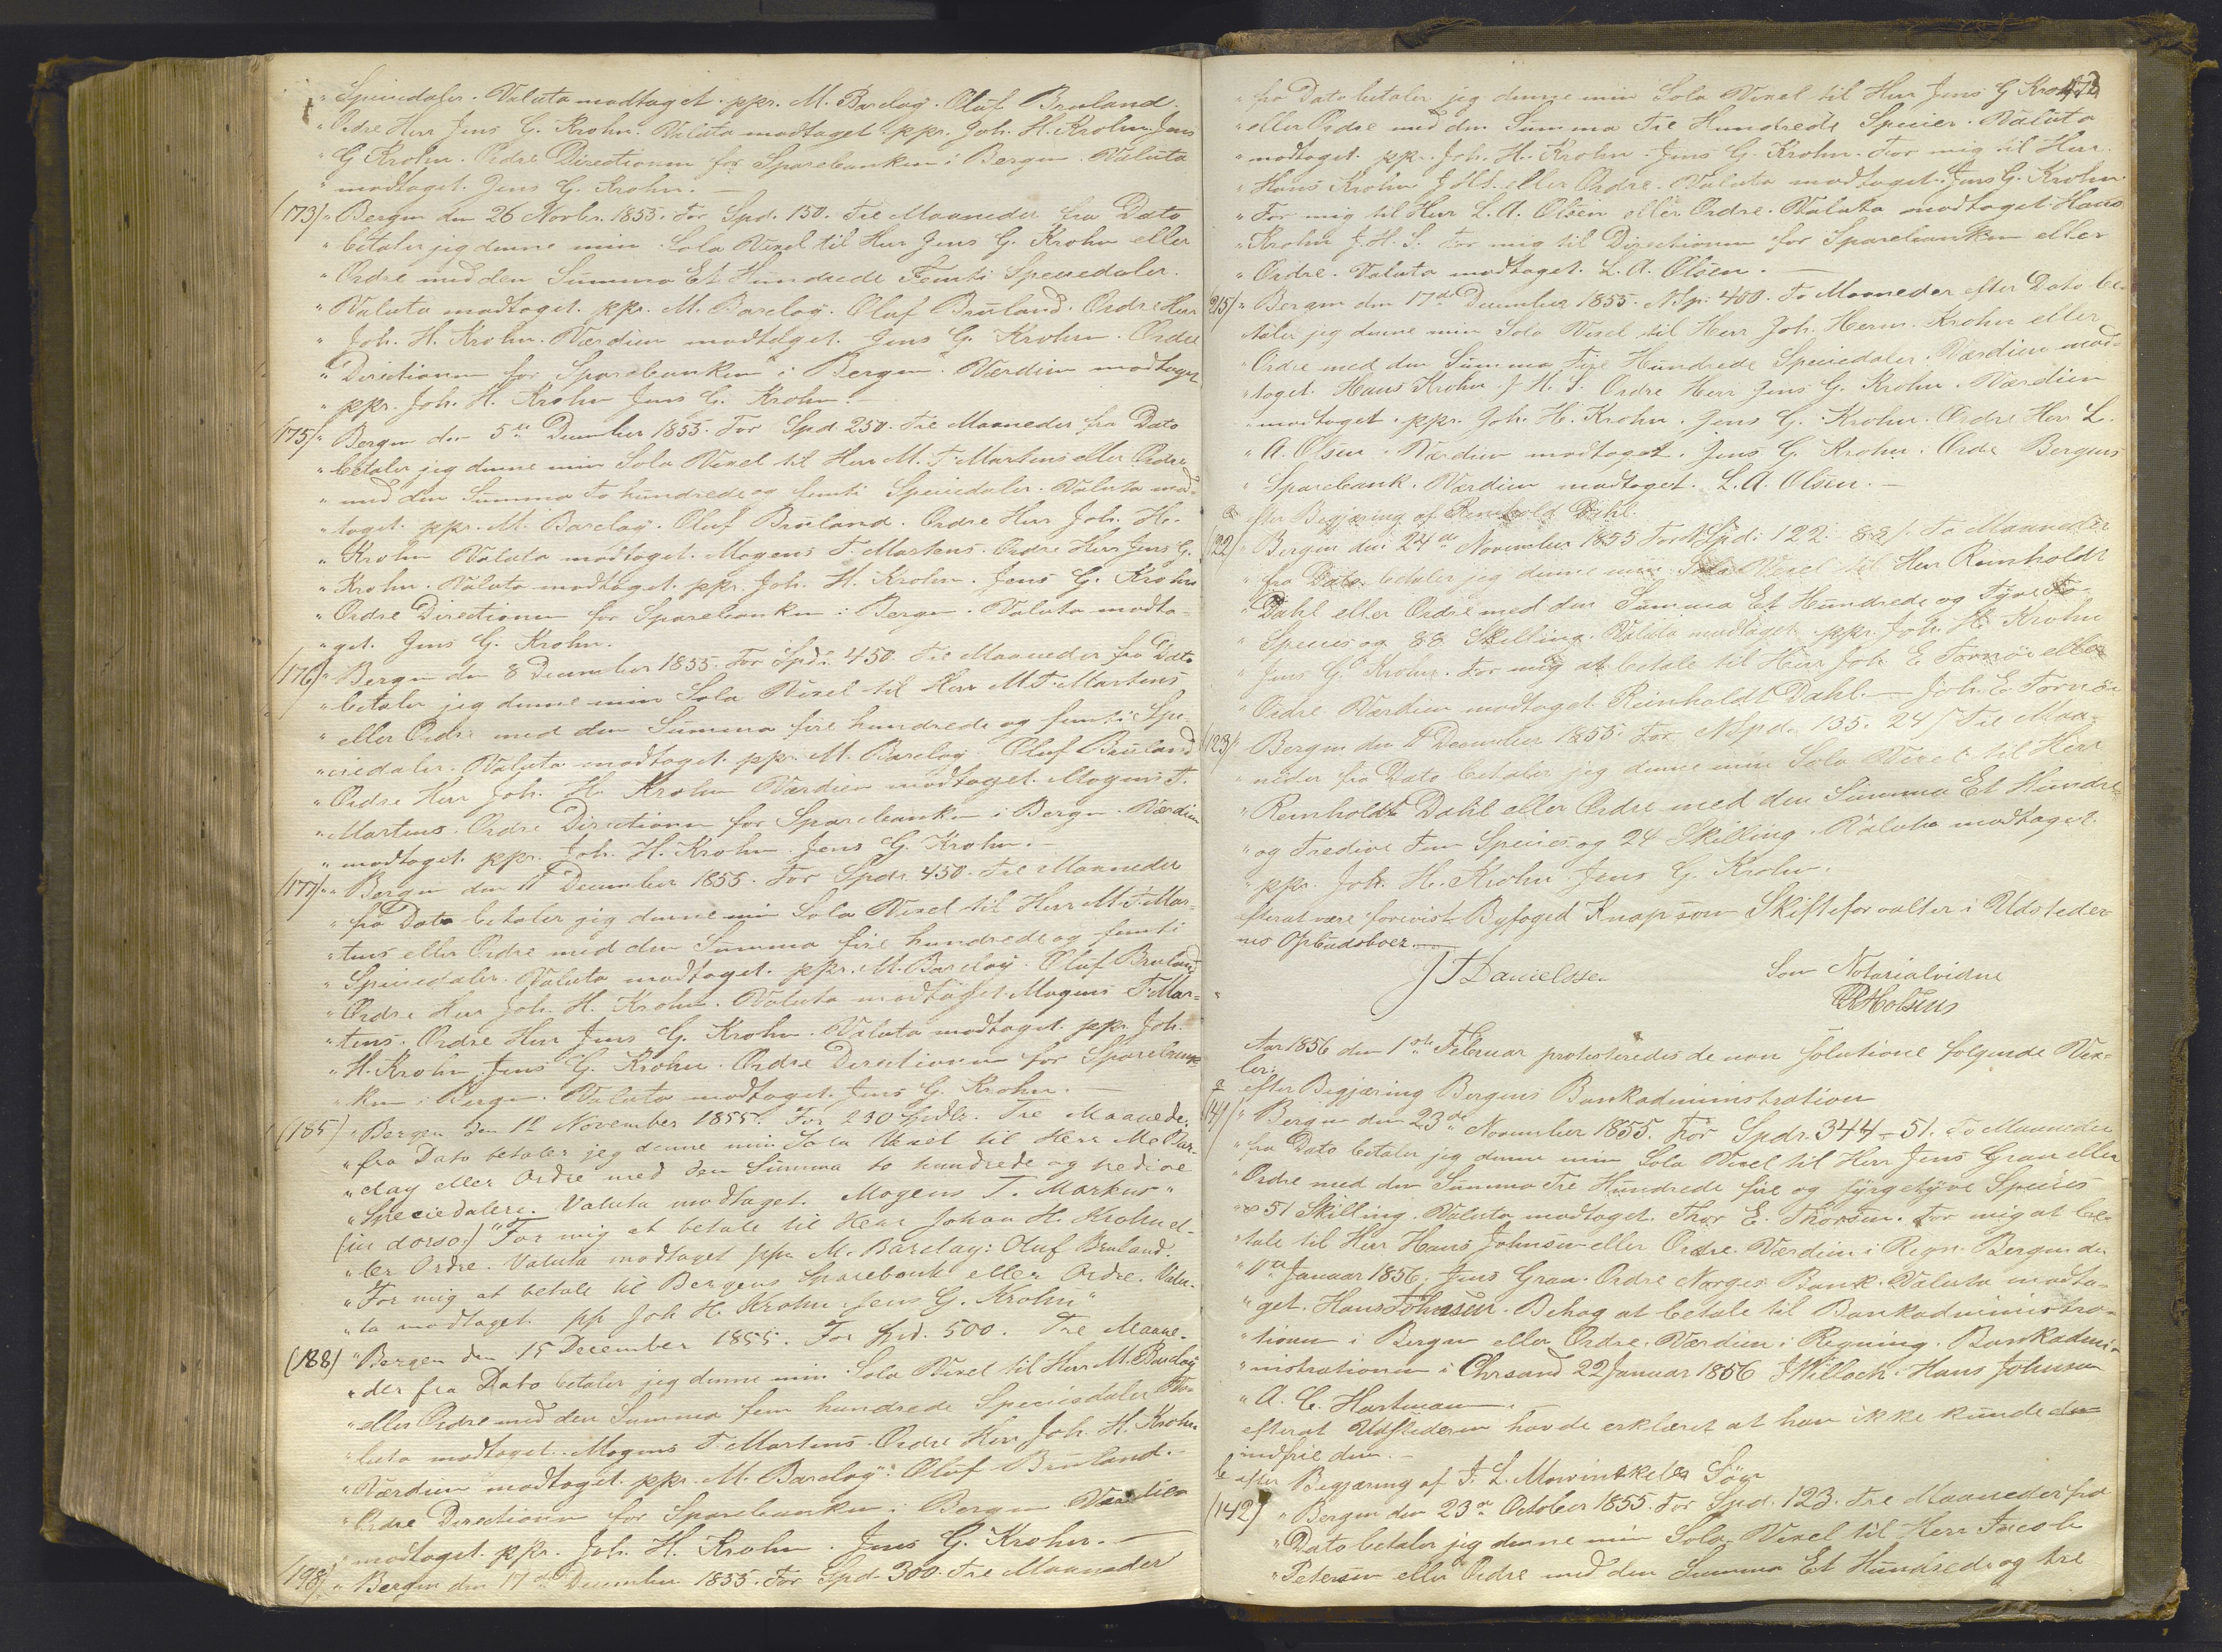 "Speciedaler. Valuta modtaget. ppr. M. Barclay. Oluf Bruland.
"Ordre Herr Jens G. Krohn. Valuta modtaget ppr. Joh. H. Krohn Jens
"G Krohn. Ordre Directionen for Sparebanken i Bergen. Valuta
"modtaget. Jens G. Krohn. —
(173) "Bergen den 26 Novbr. 1855. For Spd. 150. Tre Maaneder fra Dato
"betaler jeg denne min Sola Vexel til Herr Jens G. Krohn eller
"Ordre med den Summa Et Hundrede Femti Speciedaler.
"Valuta modtaget. ppr. M. Barclay. Oluf Bruland. Ordre Herr
"Joh. H. Krohn. Værdien modtaget. Jens G. Krohn. Ordre
"Directionen for Sparebanken i Bergen. Værdien modtaget
"ppr. Joh. H. Krohn Jens G. Krohn. —
(175) "Bergen den 5te December 1855. For Spd. 250. Tre Maaneder fra Dato
"betaler jeg denne min Sola Vexel til Herr M. T. Martens eller Ordre
"med den Summa to hundrede og femti Speciedaler. Valuta mod-
"taget. ppr. M. Barclay. Oluf Bruland. Ordre Herr Joh. H.
"Krohn Valuta modtaget. Mogens T. Martens. Ordre Herr Jens G.
"Krohn. Valuta modtaget. ppr. Joh. H. Krohn. Jens G. Krohn
"Ordre Directionen for Sparebanken i Bergen. Valuta modta-
"get. Jens G. Krohn.
(176) "Bergen den 8 December 1855. For Spdr. 450. Tre Maaneder fra Dato
"betaler jeg denne min Sola Vexel til Herr M. T. Martens
"eller Ordre med den Summa fire hundrede og femti Spe-
"ciedaler. Valuta modtaget. ppr. M. Barclay Oluf Bruland
"Ordre Herr Joh. H. Krohn Værdien modtaget. Mogens T.
"Martens. Ordre Directionen for Sparebanken i Bergen. Værdien
"modtaget. ppr. Joh. H. Krohn. Jens G. Krohn. —
(177) "Bergen den 11 December 1855. For Spdr. 450. Tre Maaneder
"fra Dato betaler jeg denne min Sola Vexel til Herr M. T. Mar-
"tens eller Ordre med den Summa fire hundrede og femti
"Speciedaler. Valuta modtaget. ppr. M. Barclay. Oluf Bruland
"Ordre Herr Joh. H. Krohn. Valuta modtaget. Mogens T. Mar-
"tens. Ordre Herr Jens G. Krohn. Valuta modtaget. ppr. Joh.
"H. Krohn Jens G. Krohn. Ordre Directionen for Spareban-
"ken i Bergen. Valuta modtaget. Jens G. Krohn. —
(185) "Bergen den 12 November 1855. For 230 Spdlr. Tre Maaneder
"fra Dato betaler jeg denne min Sola Vexel til Herr M. Bar-
"clay eller Ordre med den Summa to hundrede og tredive
"Speciedalere. Valuta modtaget. Mogens T. Martens"
(in dorso:) "For mig at betale til Herr Johan H. Krohn el-
"ler Ordre. Valuta modtaget ppr M. Barclay: Oluf Bruland.
"For mig at betale til Bergens Sparebank eller Ordre. Valu-
"ta modtaget. pp Joh H. Krohn: Jens G. Krohn"
(188) "Bergen den 15 December 1855. For Spd. 500. Tre Maane-
"der fra Dato betaler jeg denne min Sola Vexel til Herr M. Barclay
"eller Ordre med den Summa fem hundrede Speciesdaler Va-
"luta modtaget. Mogens T. Martens. Ordre Herr Joh. H. Krohn
"Værdien modtaget. ppr. M. Barclay: Oluf Bruland. —
"Ordre Directionen for Sparebanken i Bergen Værdien
"modtaget. ppr. Joh. H. Krohn. Jens G. Krohn. —
(198) "Bergen den 17de December 1855. For Spd. 300. Tre Maaneder
"fra Dato betaler jeg denne min Sola Vexel til Herr Jens G Krohn
"eller Ordre med den Summa Tre Hundrede Specier. Valuta
"modtaget. ppr. Joh. H. Krohn. Jens G. Krohn. For mig til Herr
"Hans Krohn J. H. S. eller Ordre. Valuta modtaget. Jens G. Krohn.
"For mig til Herr L. A. Olsen eller Ordre. Valuta modtaget. Hans
"Krohn J. H. S. For mig til Directionen for Sparebanken eller
"Ordre. Valuta modtaget. L. A. Olsen. —
(215) "Bergen den 17de December 1855. NSp: 400. To Maaneder efter Dato be-
"taler jeg denne min Sola Vexel til Herr Joh. Herm. Krohn eller
"Ordre med den Summa Fire Hundrede Speciedaler. Værdien mod-
"taget. Hans Krohn J. H. S. Ordre Herr Jens G. Krohn. Værdien
"modtaget. ppr. Joh. H. Krohn. Jens G. Krohn. Ordre Herr L.
"A. Olsen. Værdien modtaget. Jens G. Krohn. Ordre Bergens
"Sparebank. Værdien modtaget. L. A. Olsen. —
efter Begjæring af Reinhold Dahl.
(22) "Bergen den 24de November 1855 For NSpd: 122. 88 /. To Maaneder
"fra Dato betaler jeg denne min Sola Vexel til Herr Reinholdt
"Dahl eller Ordre med den Summa Et Hundrede og Tyve To-
"Species og 88 Skilling. Valuta modtaget. ppr. Joh. H. Krohn
"Jens G. Krohn. For mig at betale til Herr Joh. E. Tornöe eller
"Ordre. Værdien modtaget. Reinholdt Dahl. — Joh. E. Tornöe
(23) "Bergen den 11 December 1855. For NSpd. 135. 24 / Tre Maa-
"neder fra Dato betaler jeg denne min Sola Vexel til Herr
"Reinholdt Dahl eller Ordre med den Summa Et Hundrede
"og Tredive Fem Species og 24 Skilling. Valuta modtaget.
"ppr. Joh. H. Krohn Jens G. Krohn.
efterat være forevist Byfoged Knap som Skifteforvalter i Udsteder-
nes Opbudsboer. —
J T Danielssen
Som Notarialvidne
Aar 1856 den 1ste Februar protesteredes de non solutione følgende Vex-
ler:
a efter Begjæring Bergens Bankadministration
(141) "Bergen den 23de November 1855. For Spdr. 344 - 51. To Maaneder
"fra Dato betaler jeg denne min Sola Vexel til Herr Jens Gran eller
"Ordre med den Summa Tre Hundrede fire og fyrgetyve Species
"& 51 Skilling. Valuta modtaget. Thor E. Thorsen. For mig at be-
"tale til Herr Hans Johnsen eller Ordre. Værdien i Regn. Bergen den
"11te Januar 1856. Jens Gran. Ordre Norges Bank. Valuta modta-
"get. Hans Johnsen. Behag at betale til Bankadministra-
"tionen i Bergen eller Ordre. Værdien i Regning. Bankadmi-
"nistrationen i Chrsand 22 Januar 1856 J Willoch. Hans Johnsen
"A. C. Hartman.
efterat Udstederen havde erklæret at han ikke kunde
indfrie den. —
b efter Begjæring af F. L. Mowinkels Søn
(142) "Bergen den 23de October 1855. For Spd. 123. Tre Maaneder fra
"Dato betaler jeg denne min Sola Vexel til Herr Jacob
"Petersen eller Ordre med den Summa Et Hundrede og tre